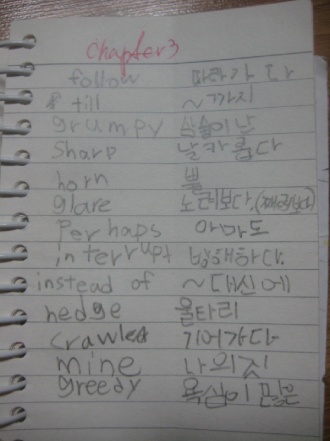 chapter3
follow 따라가다
till ~까지
grumpy 심술이난
Sharp 날카롭다
horn 뿔
glare 노려보다.(째려보다)
Perhaps 아마도
interrupt 방해하다.
instead of ~대신에
hedge 울타리
crawled 기어가다
mine 나의것
greedy 욕심이 많은